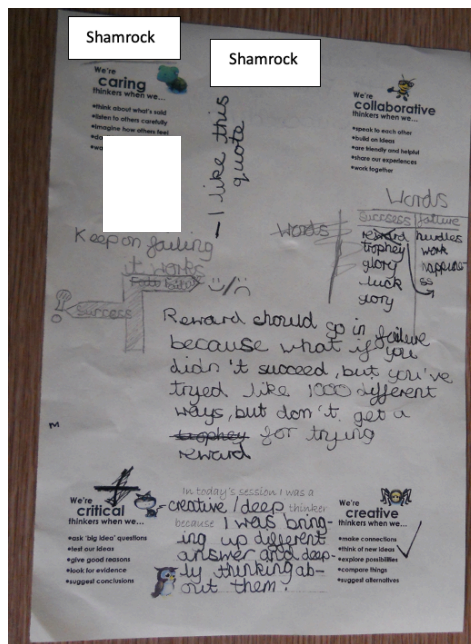 Shamrock
Shamrock
We're
caring
thinkers when we...
•think about what's said
•listen to others carefully
•imagine how others feel
— I like this
quote
We're
collaborative
thinkers when we...
•speak to each other
•build on ideas
•are friendly and helpful
•share our experiences
•work together
Words
Success failure
reward hurdles
trophey work
glory happine-
luck ss
glory
Words
Keep on failing
it works
Success
Reward should go in failure
because what if you
didn't succeed, but you've
tryed like 1000 different
ways, but don't get a
trophey for trying
reward
We're
critical
thinkers when we...
•ask 'big idea' questions
•test our ideas
•give good reasons
•look for evidence
•suggest conclusions
In today's session I was a
creative/deep thinker
because I was bring-
ing up different
answer and deep-
ly thinking ab-
out them!
We're
creative
thinkers when we...
•make connections
•think of new ideas
•explore possibilities
•compare things
•suggest alternatives